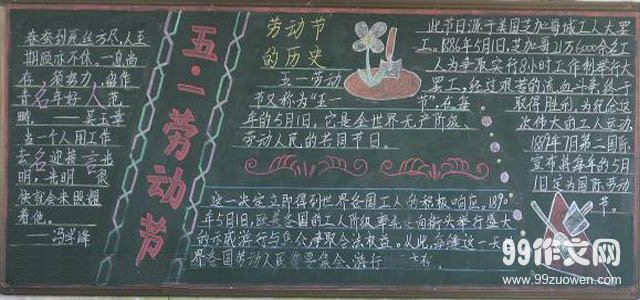 春蚕到死丝方尽,人至
期颐亦不休。一息尚
存 须努力,留作
青 年好 范
畴。——吴玉章
当一个人用工作
去 迎接 光
明,光明
很快就会来照耀
着他。
——冯学峰
五·一劳动节
劳动节
的历史
五一劳动
节又称为“五一
节”,在每
年的5月1日,它是全世界无产阶级、
劳动人民的共同节日。
此节日源于美国芝加哥城工人大罢
工,1886年5月1日,芝加哥21万6000余名工
人为争取实行8小时工作制举行大
罢工,经过艰苦的流血斗争,终于
取得胜利,为纪念这
次伟大的工人运动,
1889年7月第二国际
宣布将每年的5月
1日定为国际劳动
节。
这一决定立即得到世界各国工人的积极响应。1890
年5月1日,欧美各国的工人阶级率先走向街头,举行盛大
的示威游行与集会,争取合法权益。从此,每逢这一天
界各国劳动人民都要集会、游行
99作文网
www.99zuowen.com